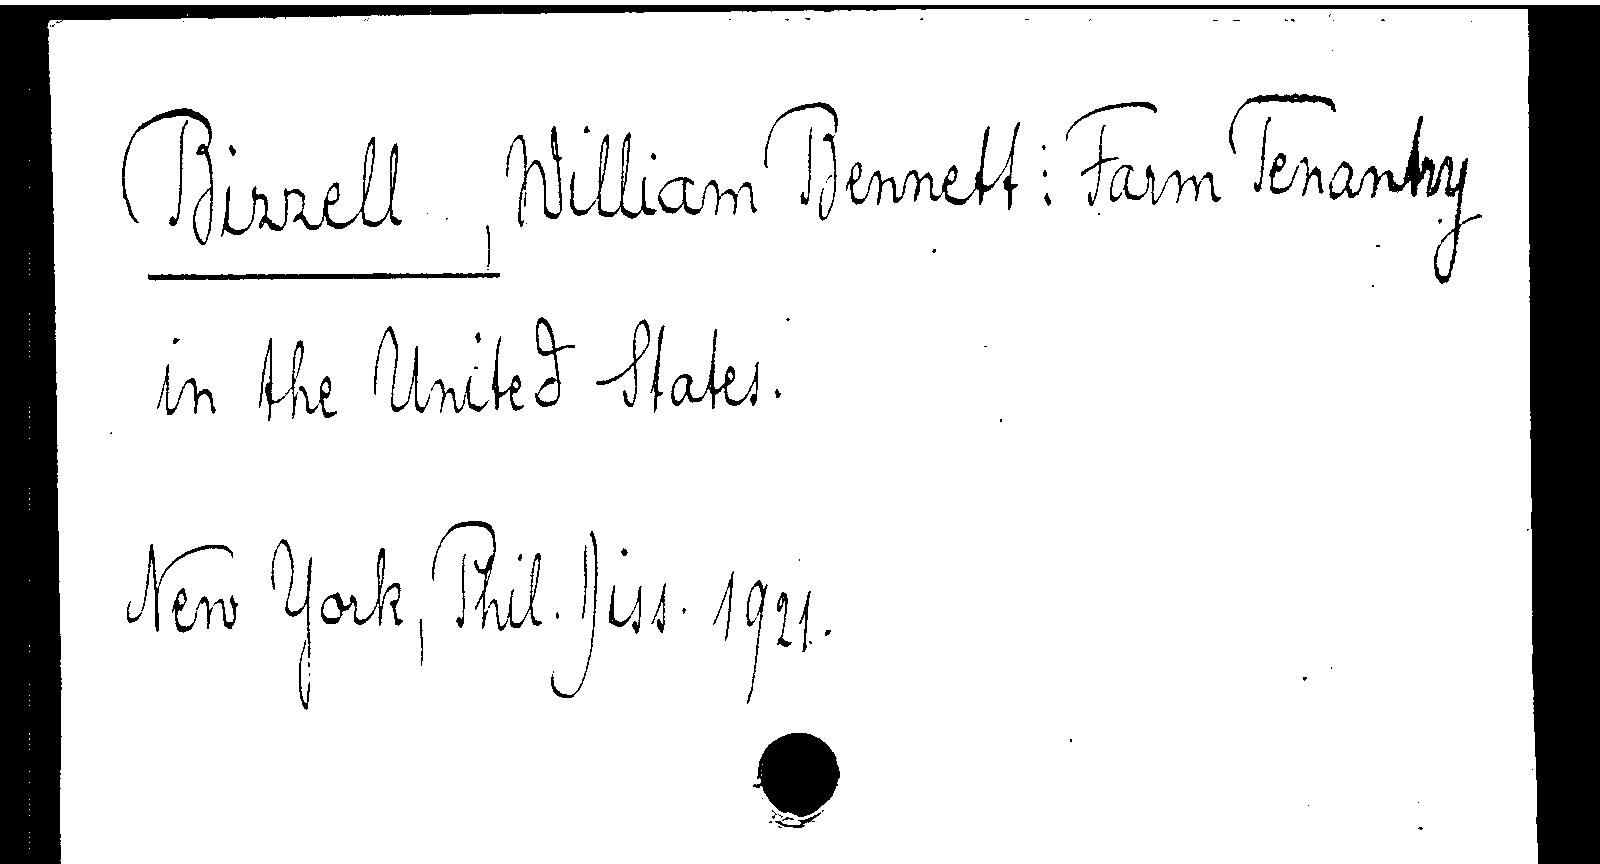 Bizzell, William Bennett: Farm Tenantry
in the United States.
New York, Phil. Diss. 1921.